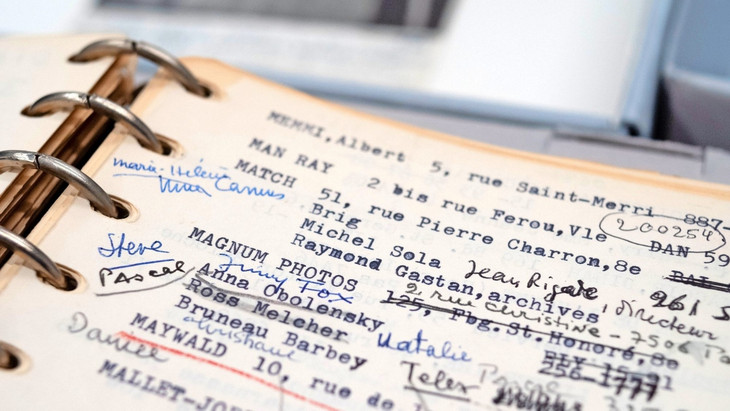 MEMMI, Albert 5, rue Saint-Merri 887-
MAN RAY 2 bis rue Ferou, VIe DAN 59
200254
MATCH 51, rue Pierre Charron, 8e
marie-Hélène
Brig
Michel Sola Jean Rigade, directeur
Raymond Gastan, archives
MAGNUM PHOTOS 125, Fbg.St.Honoré, 8e
2, rue Christine - 7500
Steve
Jimmy Fox
Pascal Anna Obolensky
Ross Melcher
Bruneau Barbey Natalie
256-1777
christiane Telex
Daniel
MAYWALD 10, rue de l
MALLET-JOR